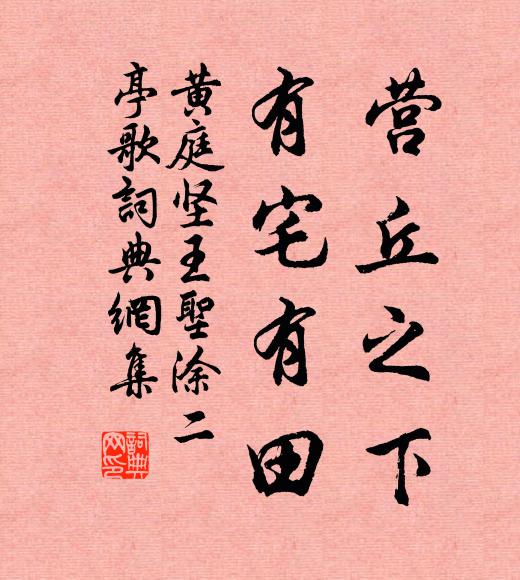 营丘之下
有宅有田
黄庭坚王聖涂二
亭歌詞典網集
詞典网印